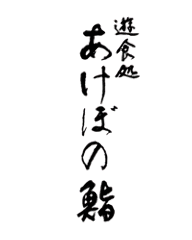 遊食処
あけぼの鮨